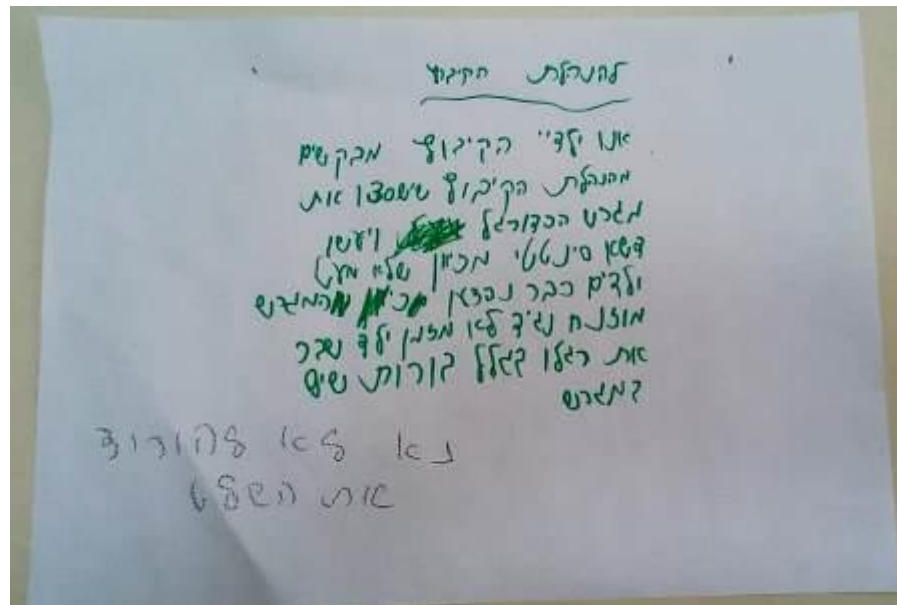 להנהלת הקיבוץ
אנו ילדיי הקיבוץ מבקשים
מהנהלת הקיבוץ שישפצו את
מגרש הכדורגל ויעשו
דשא סינטטי מכיון שלא מעט
ילדים כבר נפצאו מהמגרש
מוזנח נגיד לא מזמן ילד שבר
את רגלו בגלל בורות שיש
במגרש
נא לא להוריד
את השלט